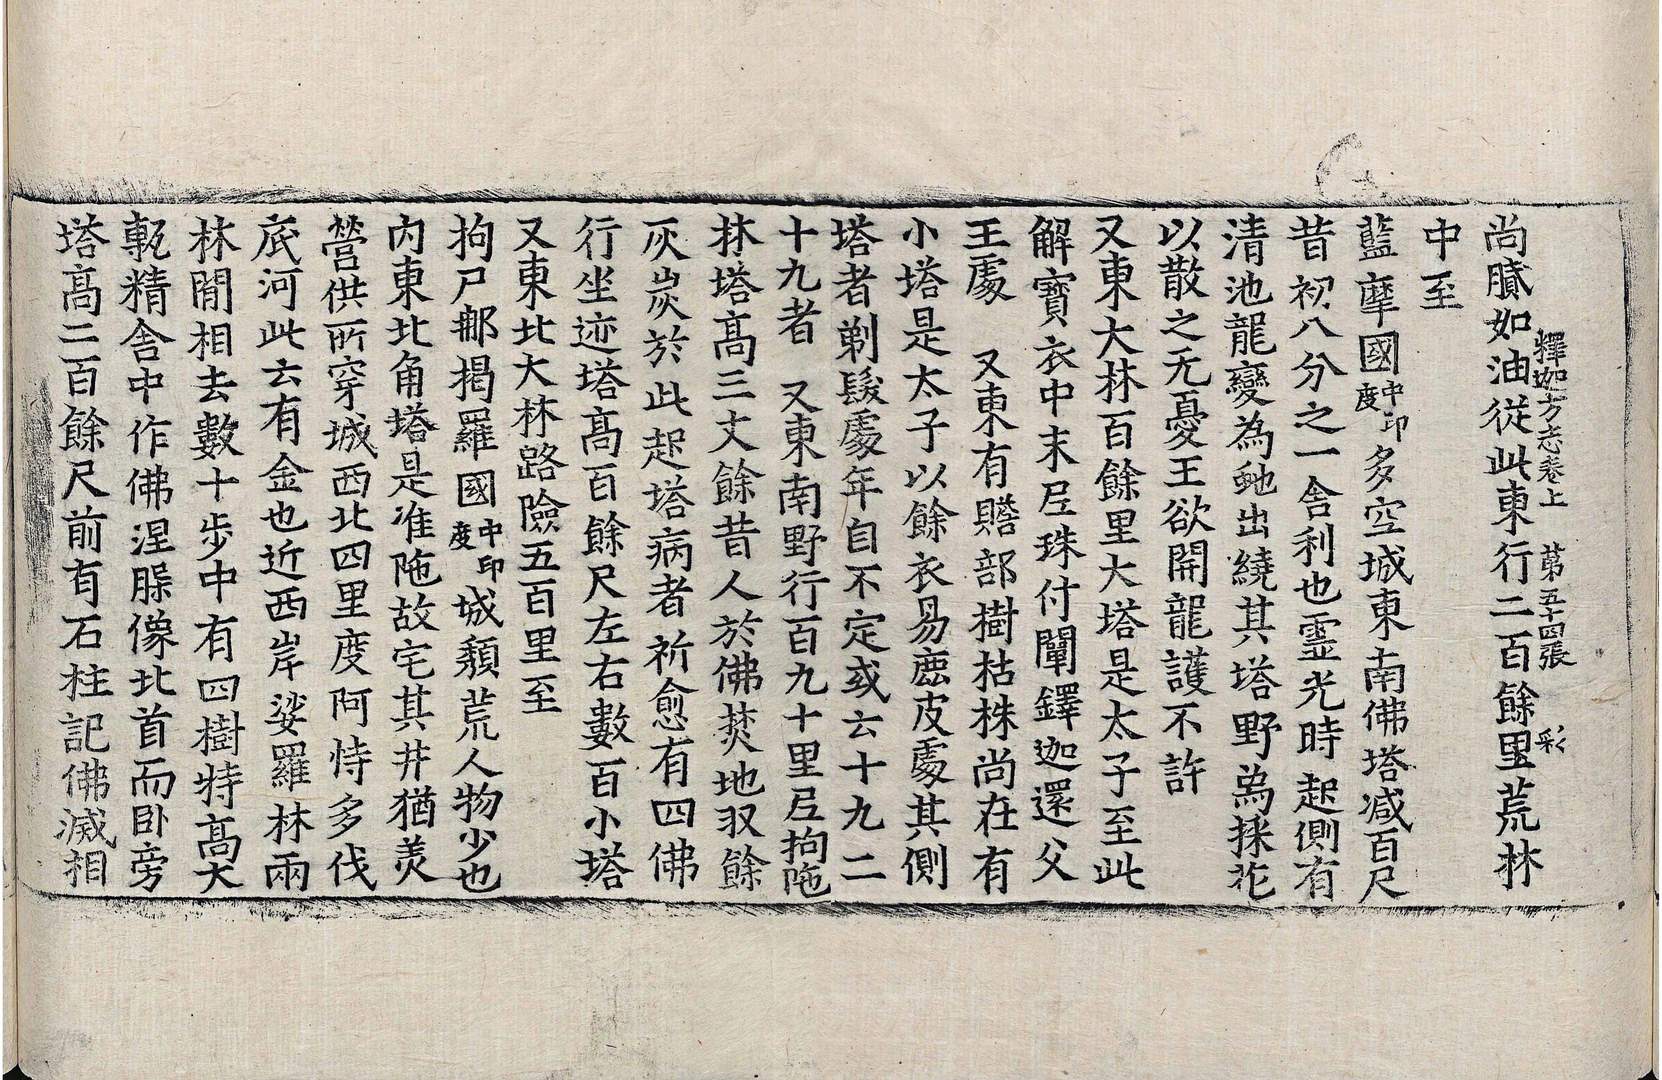 尚膩如油從此東行二百餘里荒林
釋迦方志卷上　第五十四張　彩
中至
藍摩國中印度多空城東南佛塔减百尺
昔初八分之一舎利也靈光時起側有
清池龍變為虵出繞其塔野為採花
以散之无憂王欲開龍護不許
又東大林百餘里大塔是太子至此
解寶衣中末尼珠付闡鐸迦還父
王處　又東有贍部樹枯株尚在有
小塔是太子以餘衣易鹿皮處其側
塔者剃髮處年自不定或云十九二
十九者　又東南野行百九十里尼拘陁
林塔高三丈餘昔人於佛焚地収餘
灰炭於此起塔病者祈愈有四佛
行坐迹塔高百餘尺左右數百小塔
又東北大林路險五百里至
拘尸那揭羅國中印度城頹荒人物少也
內東北角塔是准陁故宅其井猶美
營供所穿城西北四里度阿恃多伐
底河此云有金也近西岸娑羅林兩
林閒相去數十步中有四樹特高大
甎精舎中作佛涅槃像北首而卧旁
塔高二百餘尺前有石柱記佛滅相